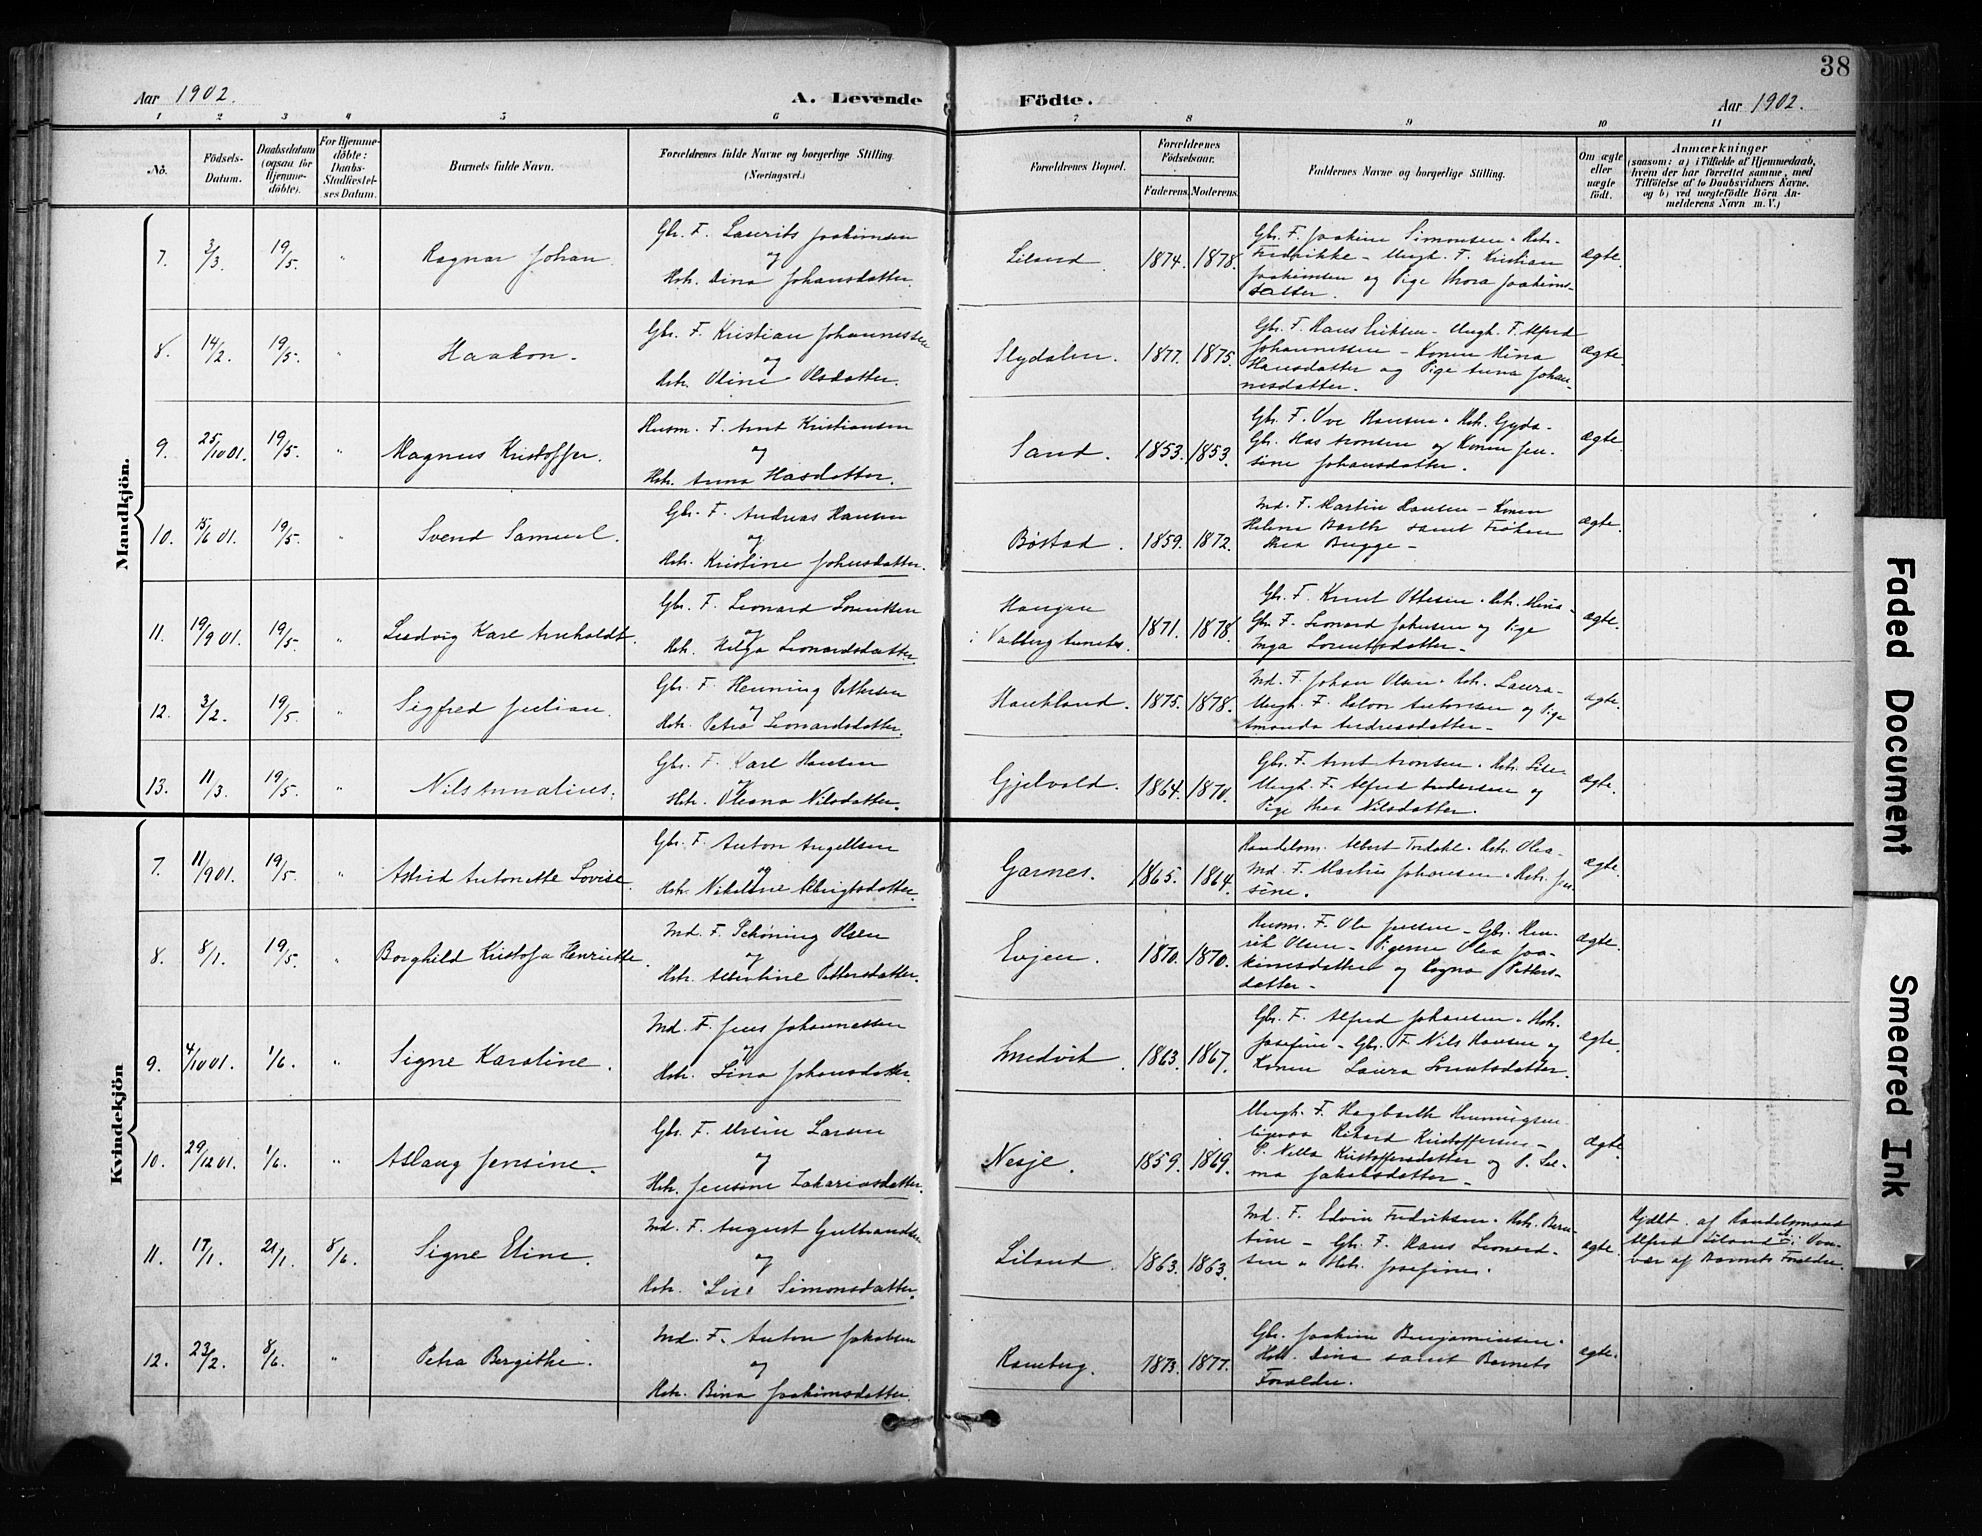 38
Aar 1902.
A. Levende Födte.
Aar 1902.
1 2 3 4 5 6 7 8 9 10 11
No.
Födsels-Datum.
Daabsdatum (ogsaa for Hjemme-döbte).
For Hjemme-döbte: Daabs-Stadfæstel-ses Datum.
Barnets fulde Navn.
Forældrenes fulde Navne og borgerlige Stilling. (Næringsvei.)
Forældrenes Bopæl.
Forældrenes Födselsaar.
Faderens. Moderens.
Faddernes Navne og borgerlige Stilling.
Om ægte eller uægte födt.
Anmærkninger
(saasom: a) i Tilfælde af Hjemmedaab, hvem der har forrettet samme, med Tilföielse af to Daabsvidners Navne, og b) ved uægtefödte Börn An-melderens Navn m. V.)
Mandkjön.
7. 3/3. 19/5. " Ragnar Johan.
Gbr. F. Laurits Joakimsen
og
Hstr. Dina Johansdatter.
Liland. 1874. 1878.
Gbr. F. Joakim Simonsen. Hstr.
Fredrikke - Ungk. F. Kristian
Joakimsen og Pige Thora Joakims-
datter.
ægte.
8. 14/2. 19/5. " Haakon.
Gbr. F. Kristian Johannessen
og
Hstr. Oline Olsdatter.
Slydalen. 1877. 1875.
Gbr. F. Hans Eriksen - Ungk. F. Alfred
Johannessen - Konen Mina
Hansdatter og Pige Anna Johan-
nesdatter.
ægte.
9. 25/10 01. 19/5. " Magnus Kristoffer.
Husm. F. Arnt Kristiansen
og
Hstr. Anna Hasdatter.
Sand. 1853. 1853.
Gbr. F. Ove Hansen. Hstr. Gyda.
Gbr. Has Aronsen og Konen Jen-
sine Johansdatter.
ægte.
10. 15/6 01. 19/5. " Svend Samuel.
Gbr. F. Andreas Hansen
og
Hstr. Kristine Johnsdatter.
Bøstad. 1859. 1872.
Ind. F. Martin Hansen - Konen
Helene Barth samt Frøken
Thea Bugge -
ægte.
11. 19/9 01. 19/5. " Ludvig Karl Arnholdt.
Gbr. F. Leonard Lorentsen
og
Hstr. Helga Leonardsdatter
Haugen
i Valberg
1871. 1878.
Gbr. F. Knut Ottesen. Hstr. Mina -
Gbr. F. Leonard Johnsen og Pige
Inga Lorentsdatter -
ægte.
12. 3/2. 19/5. " Sigfred Julian.
Gbr. F. Henning Pettersen
og
Hstr. Petra Leonardsdatter.
Haukland. 1875. 1878.
Ind. F. Johan Olsen. Hstr. Laura -
Ungk. F. Halvor Antonsen og Pige
Amanda Andreasdatter -
ægte.
13. 11/3. 19/5. " Nils Annatius.
Gbr. F. Karl Hansen
og
Hstr. Oleana Nilsdatter.
Gjelvold. 1864. 1870.
Gbr. F. Arnt Aronsen. Hstr. Lise -
Ungk. F. Alfred Andersen og
Pige Thea Nilsdatter.
ægte.
Kvindekjön
7. 11/9 01. 19/5. " Astrid Antonette Lovise.
Gbr. F. Anton Angellsen
og
Hstr. Nikoline Albrigtsdatter.
Garnes. 1865. 1864.
Handelsm. Albert Tredahl. Hstr. Olea -
Ind. F. Martin Johansen. Hstr. Jen-
sine.
ægte.
8. 8/1. 19/5. " Borghild Kristofa Henriette.
Ind. F. Schöning Olsen
og
Hstr. Albertine Pettersdatter.
Evjen. 1870. 1870.
Husm. F. Ole Jensen - Gbr. Hen-
rik Olsen - Pigerne Olea Joa-
kimsdatter og Ragna Petters-
datter -
ægte.
9. 4/10 01. 1/6. " Signe Karoline.
Ind. F. Jens Johannessen
og
Hstr. Lina Johansdatter.
Smedvik. 1863. 1867.
Gbr. F. Alfred Johansen. Hstr.
Josefine - Gbr. F. Nils Hansen og
Konen Laura Lorentsdatter.
ægte.
10. 29/12 01. 1/6. " Aslaug Jensine.
Gbr. F. Ursin Larsen
og
Hstr. Jensine Zakariasdatter.
Nesje. 1859. 1869.
Ungk. F. Hagbarth Henningsen
ligesaa Rikard Kristoffersen -
P. Nilla Kristoffersdatter og P. Sel-
ma Jakobsdatter -
ægte.
11. 17/1. 21/1. 8/6. Signe Eline.
Ind. F. August Gulbrandsen
og
Hstr. Lise Simonsdatter.
Liland. 1863. 1863.
Ind. F. Edvin Fredriksen. Hstr. Bern-
tine - Gbr. F. Hans Leonard-
sen. Hstr. Josefine.
ægte.
Hjdbt. af Handelsmand
Alfred Liland i Over-
vær af Barnets Forældre.
12. 23/2. 8/6. " Petra Bergithe.
Ind. F. Anton Jakobsen
og
Hstr. Bina Joakimsdatter.
Ramberg. 1873. 1877.
Gbr. Joakim Benjaminsen.
Hstr. Dina samt Barnets
Forældre.
ægte.
Faded Document
Smeared Ink